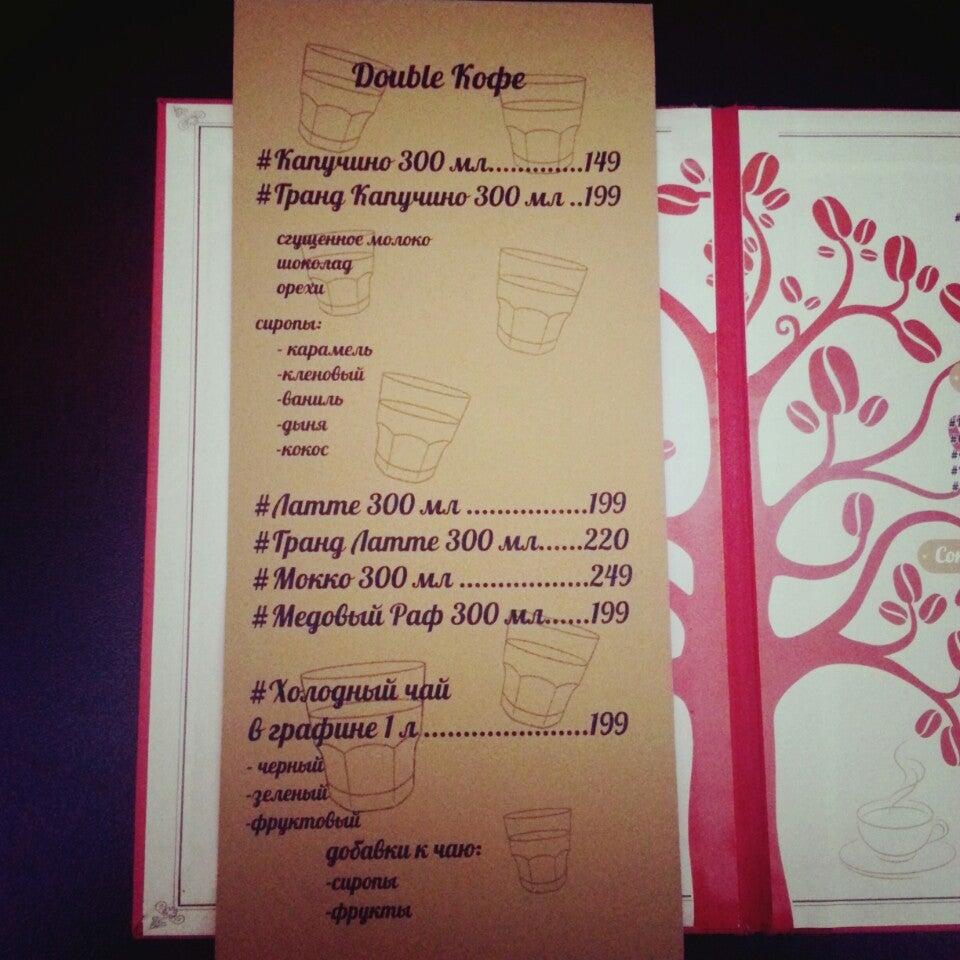 Double Кофе
#Капучино 300 мл.............149
#Гранд Капучино 300 мл ..199
сгущенное молоко
шоколад
орехи
сиропы:
- карамель
-кленовый
-ваниль
-дыня
-кокос
#Латте 300 мл .................199
#Гранд Латте 300 мл......220
#Мокко 300 мл ..................249
#Медовый Раф 300 мл......199
#Холодный чай
в графине 1 л.......................199
- черный
-зеленый
-фруктовый
добавки к чаю:
-сиропы
-фрукты